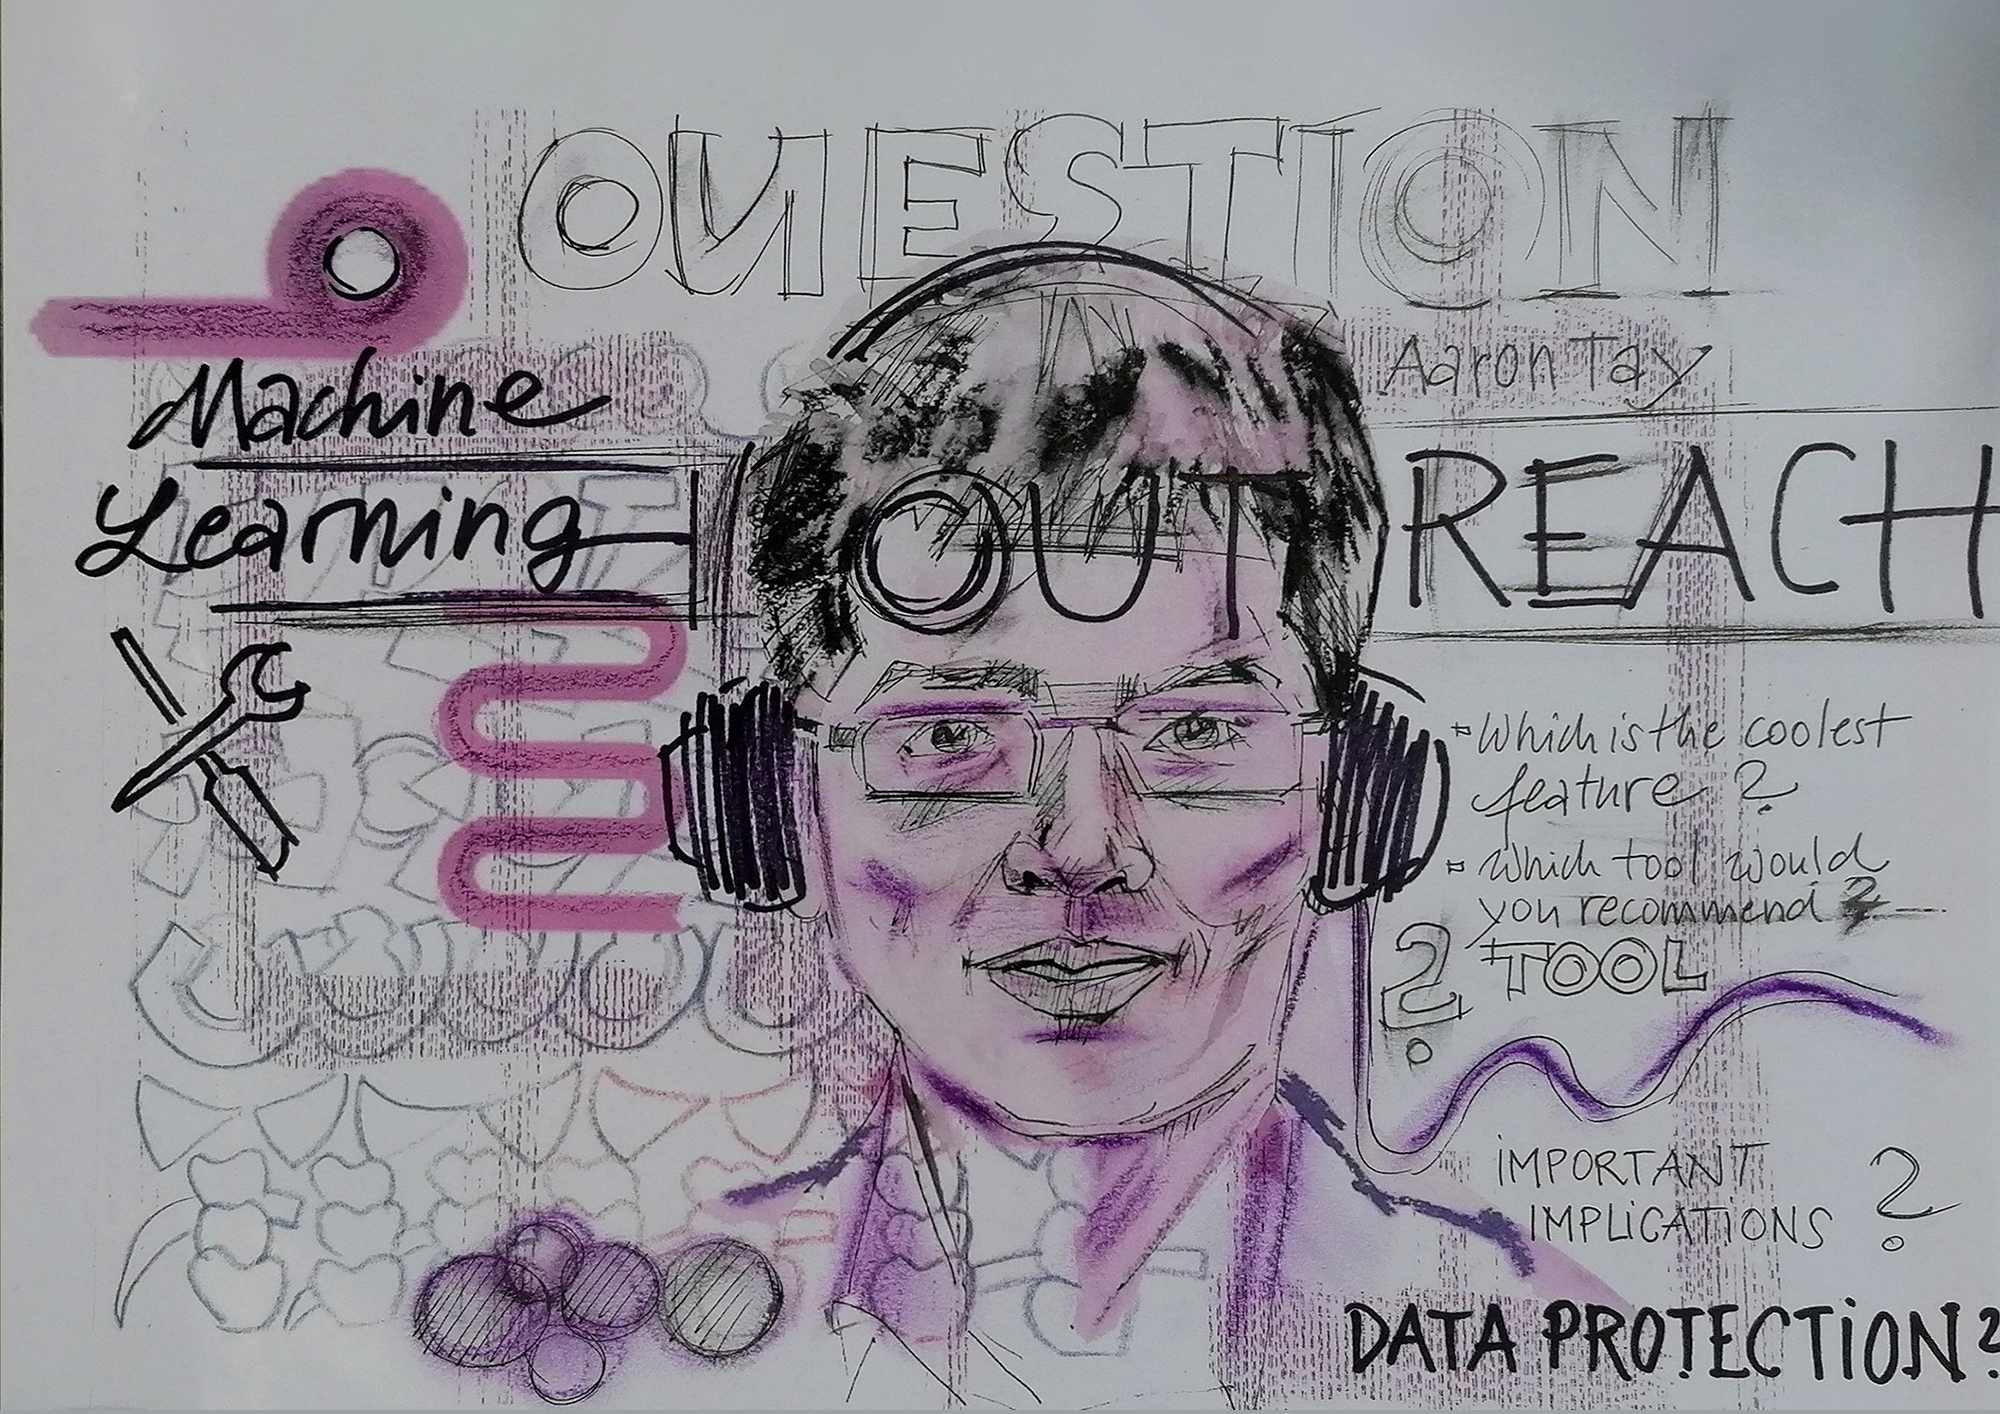 QUESTION
Aaron Tay
Machine
Learning
OUTREACH
Which is the coolest
feature ?
Which tool would
you recommend ?
? TOOL
IMPORTANT
IMPLICATIONS ?
DATA PROTECTION?